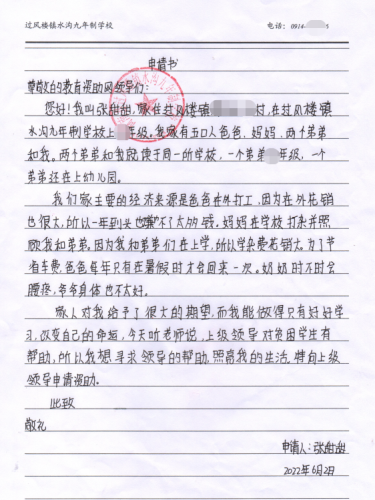 过风楼镇水沟九年制学校 电话：0914-
申请书
尊敬的教育资助网领导们：
您好！我叫张甜甜，家住在过风楼镇 村，在过风楼镇
水沟九年制学校上 年级。我家有五口人爸爸、妈妈、两个弟弟
和我。两个弟弟和我就读于同一所学校，一个弟弟 年级，一个
弟弟还在上幼儿园。
我们家主要的经济来源是爸爸在外打工，因为在外花销
也很大，所以一年到头也 不了太多钱。妈妈在学校打杂并照
顾我和弟弟。因为我和弟弟们在上学，所以学杂费花销大。为了节
省车费爸爸每年只有在暑假时才会回来一次。奶奶时不时会
腰疼，爷爷身体也不太好。
家人对我给予了很大的期望，而我能做得只有好好学
习，改变自己的命运，今天听老师说，上级领导对贫困学生有
帮助，所以我想寻求领导的帮助，照亮我的生活。特向上级
领导申请资助。
此致
敬礼
申请人：张甜甜
2022年6月2日